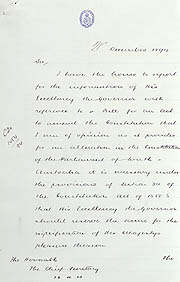 21st December 1894
Sir,
I have the honor to report
for the information of His
Excellency the Governor with
reference to a Bill for an Act
to amend the Constitution that
I am of opinion as it provides
for an alteration in the Constitution
of the Parliament of South
Australia it is necessary under
the provisions of Section 34 of
the Constitution Act of 1855-6
that His Excellency the Governor
should reserve the same for the
signification of Her Majesty's
pleasure thereon
The Honorable
The Chief Secretary